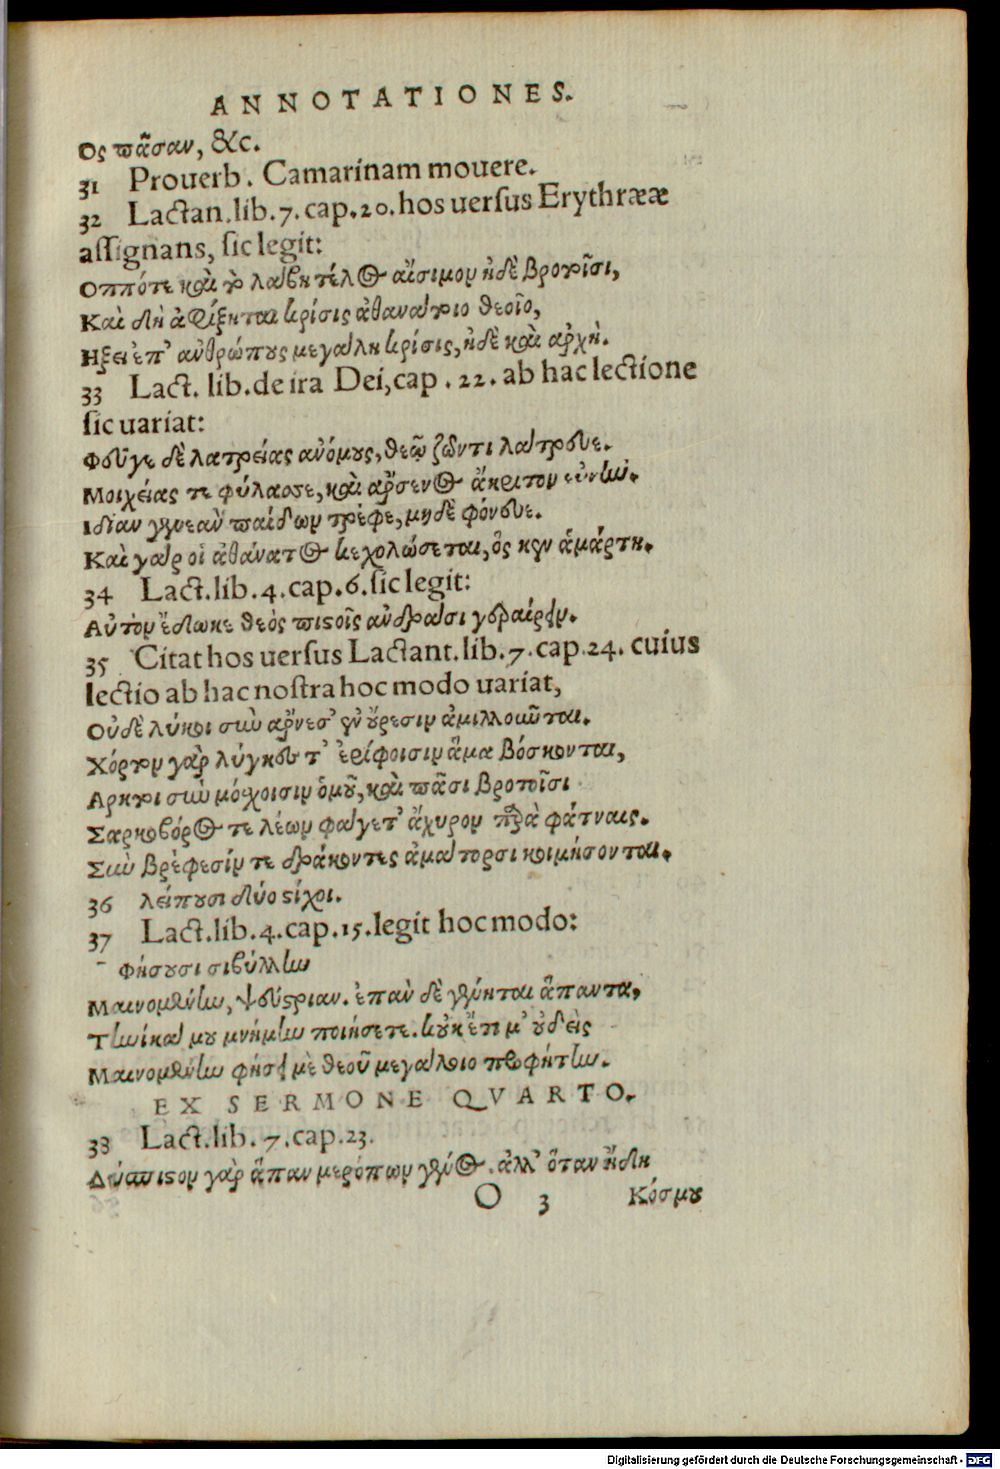 ANNOTATIONES.
Ος πᾶσαν, &c.
31 Prouerb. Camarinam mouere.
32 Lactan.lib.7.cap.20.hos uerſus Erythrææ
aſſignans, ſic legit:
Οππότε καὶ τὸ λάβη τέλος αἴσιμον ἠδὲ βροτοῖσι,
Καὶ δὴ ἀφίξηται κρίσις ἀθανάτοιο θεοῖο,
Ηξει ἐπ' ἀνθρώπους μεγάλη κρίσις, ἠδὲ καὶ ἀρχή.
33 Lact. lib. de ira Dei, cap. 22. ab hac lectione
ſic uariat:
Φεῦγε δὲ λατρείας ἀνόμους, θεῷ ζῶντι λάτρευε.
Μοιχείας τε φύλασσε, καὶ ἄρσενος ἄκριτον εὐνήν.
Ιδίαν γενεὰν παίδων τρέφε, μηδὲ φόνευε.
Καὶ γὰρ οἱ ἀθάνατος κεχολώσεται, ὅς κεν ἁμάρτη.
34 Lact.lib.4.cap.6.ſic legit:
Αὐτὸν ἔδωκε θεὸς πιστοῖς ἀνδράσι γεραίρειν.
35 Citat hos uerſus Lactant.lib.7.cap.24. cuius
lectio ab hac noſtra hoc modo uariat,
Οὐδὲ λύκοι σὺν ἄρνεσ' ἐν οὔρεσιν ἀμιλλοῶνται.
Χόρτον γὰρ λύγκες τ' ἐρίφοισιν ἅμα βόσκονται,
Αρκτοι σὺν μόσχοισιν ὁμοῦ, καὶ πᾶσι βροτοῖσι
Σαρκοβόρος τε λέων φάγετ' ἄχυρον παρὰ φάτναις.
Σὺν βρέφεσίν τε δράκοντες ἀμάτορσι κοιμήσονται.
36 λείπουσι δύο στίχοι.
37 Lact.lib.4.cap.15.legit hoc modo:
Φήσουσι σιβύλλην
Μαινομένην, ψεύστριαν. ἐπὰν δὲ γένηται ἅπαντα,
Τηνίκα μου μνήμην ποιήσετε. κοὐκ ἔτι μ' οὐδεὶς
Μαινομένην φήσει μὲ θεοῦ μεγάλοιο προφήτην.
EX SERMONE QVARTO.
38 Lact.lib. 7. cap.23.
Δύσπιστον γὰρ ἅπαν μερόπων γένος. ἀλλ' ὅταν ἤδη
O 3 Κόσμου
Digitalisierung gefördert durch die Deutsche Forschungsgemeinschaft - DFG